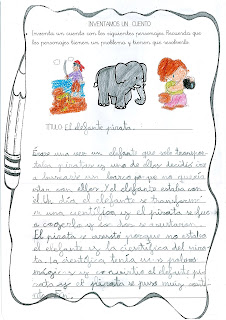 INVENTAMOS UN CUENTO
Inventa un cuento con los siguientes personajes. Recuerda que
los personajes tienen un problema y tienen que resolverlo.
TÍTULO El elefante pirata.
Érase una vez un elefante que solo transpor-
taba piratas y uno de ellos decidió ir
a un barco porque no quería
estar con ellos. Y el elefante estaba con
él. Un día el elefante se transformó
en una científica y el pirata se fue
a cogerlo y los dos se asustaron.
El pirata se asustó porque no estaba
el elefante y la científica del pira-
ta. La científica tenía unos polvos
mágicos y convirtió al elefante pi-
rata y el pirata se puso muy conten-